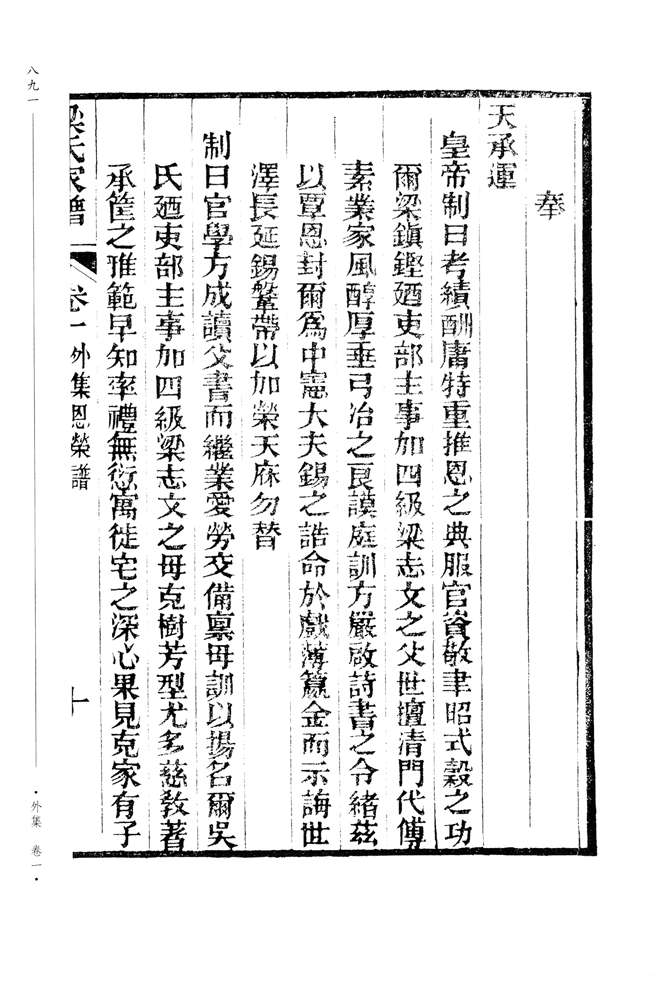 奉
天承運
皇帝制曰考績酬庸特重推恩之典服官資敬聿昭式糓之功
爾梁鎮鏗廼吏部主事加四級梁志文之父世擅清門代傳
素業家風醇厚垂弓冶之良謨庭訓方嚴啟詩書之令緒茲
以覃恩封爾爲中憲大夫錫之誥命於戲薄籯金而示誨世
澤長延錫鞶帶以加榮天庥勿替
制曰官學方成讀父書而繼業愛勞交備禀母訓以揚名爾吳
氏廼吏部主事加四級梁志文之母克樹芳型尤多慈教著
承筐之雅範早知率禮無愆寓徙宅之深心果見克家有子
梁氏家譜
卷一外集恩榮譜
十
八九一
·外集 卷一·